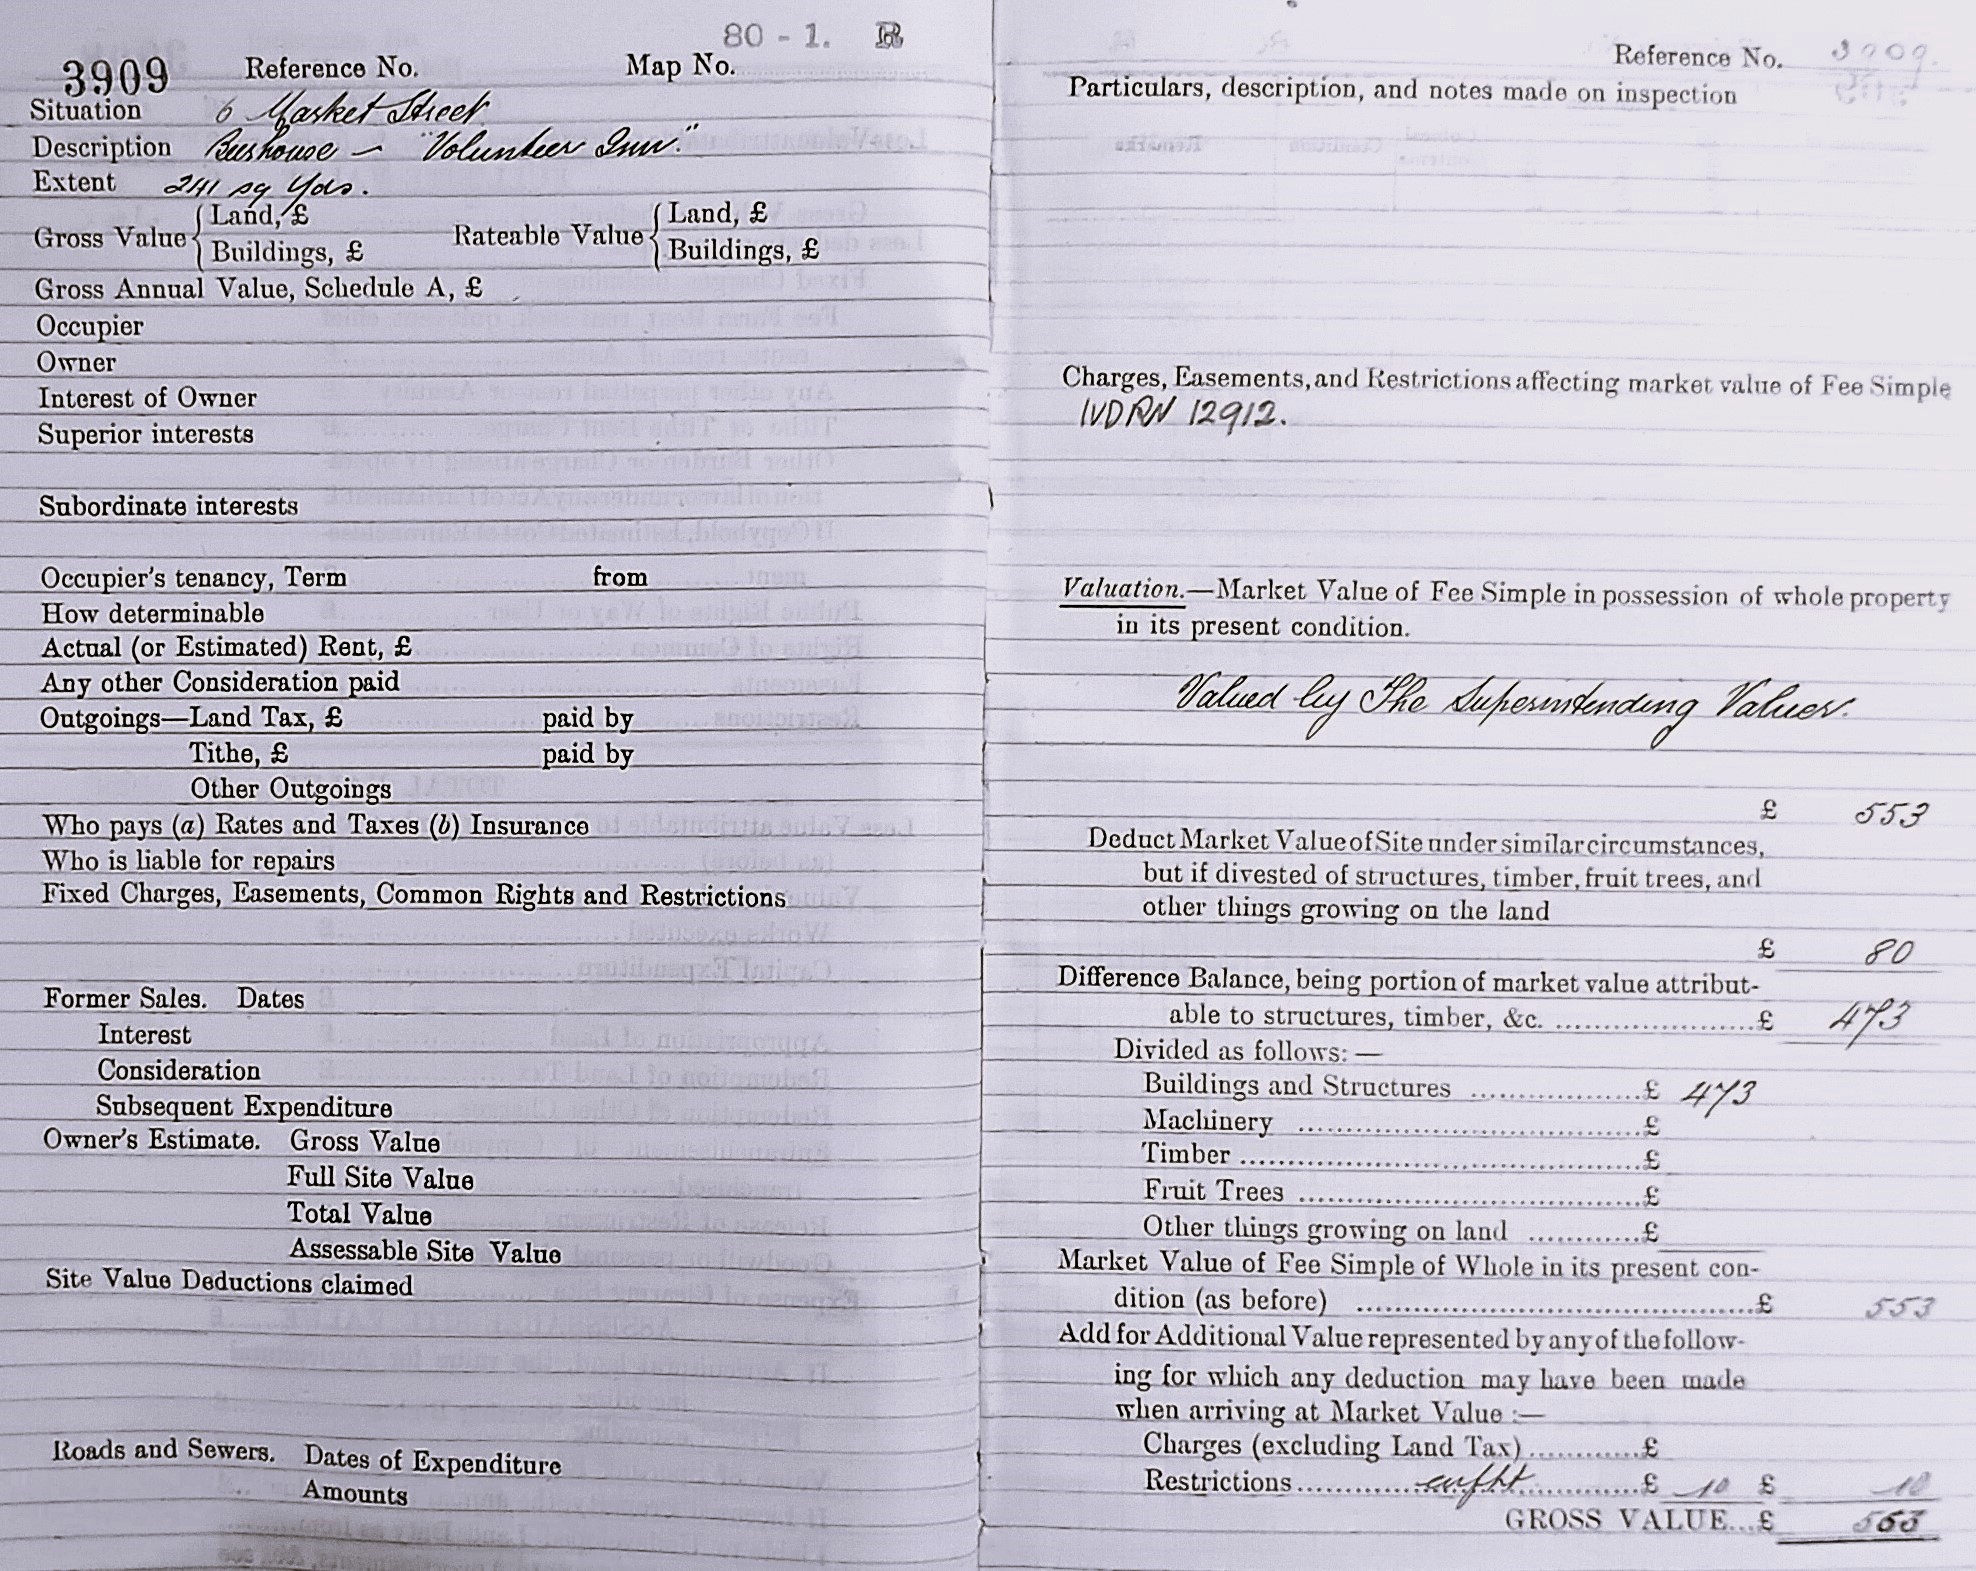 80 - 1. R
3909 Reference No. Map No.
Situation 6 Market Street
Description Beerhouse — "Volunteer Inn."
Extent 241 sq yds.
Gross Value { Land, £ Rateable Value { Land, £
Buildings, £ Buildings, £
Gross Annual Value, Schedule A, £
Occupier
Owner
Interest of Owner
Superior interests
Subordinate interests
Occupier's tenancy, Term from
How determinable
Actual (or Estimated) Rent, £
Any other Consideration paid
Outgoings—Land Tax, £ paid by
Tithe, £ paid by
Other Outgoings
Who pays (a) Rates and Taxes (b) Insurance
Who is liable for repairs
Fixed Charges, Easements, Common Rights and Restrictions
Former Sales. Dates
Interest
Consideration
Subsequent Expenditure
Owner's Estimate. Gross Value
Full Site Value
Total Value
Assessable Site Value
Site Value Deductions claimed
Roads and Sewers. Dates of Expenditure
Amounts
Reference No. 3909.
Particulars, description, and notes made on inspection
Charges, Easements, and Restrictions affecting market value of Fee Simple
IVDRN 12912.
Valuation.—Market Value of Fee Simple in possession of whole property
in its present condition.
Valued by The Superintending Valuer.
£ 553
Deduct Market Value of Site under similar circumstances,
but if divested of structures, timber, fruit trees, and
other things growing on the land
£ 80
Difference Balance, being portion of market value attribut-
able to structures, timber, &c. ........................£ 473
Divided as follows: —
Buildings and Structures ....................£ 473
Machinery ........................................£
Timber ..............................................£
Fruit Trees ........................................£
Other things growing on land .............£
Market Value of Fee Simple of Whole in its present con-
dition (as before) ..............................................£ 553
Add for Additional Value represented by any of the follow-
ing for which any deduction may have been made
when arriving at Market Value :—
Charges (excluding Land Tax) .............£
Restrictions ..............................£ 10 £ 10
GROSS VALUE...£ 563